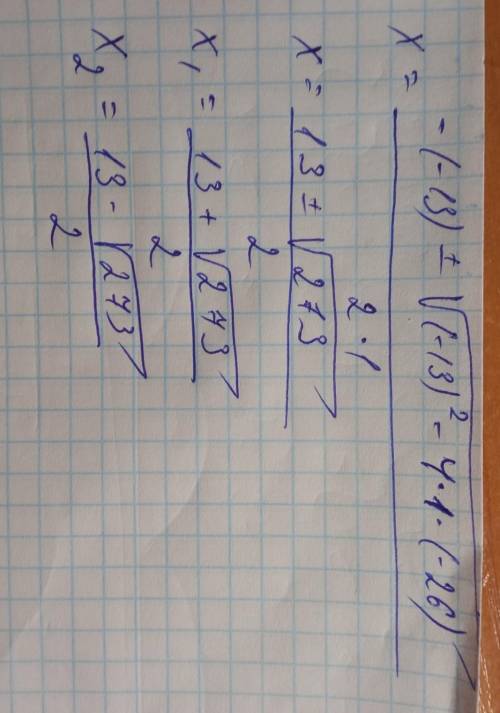 x = -(-13) ± √(-13)² - 4·1·(-26)
2·1
x = 13 ± √273
2
x₁ = 13 + √273
2
x₂ = 13 - √273
2